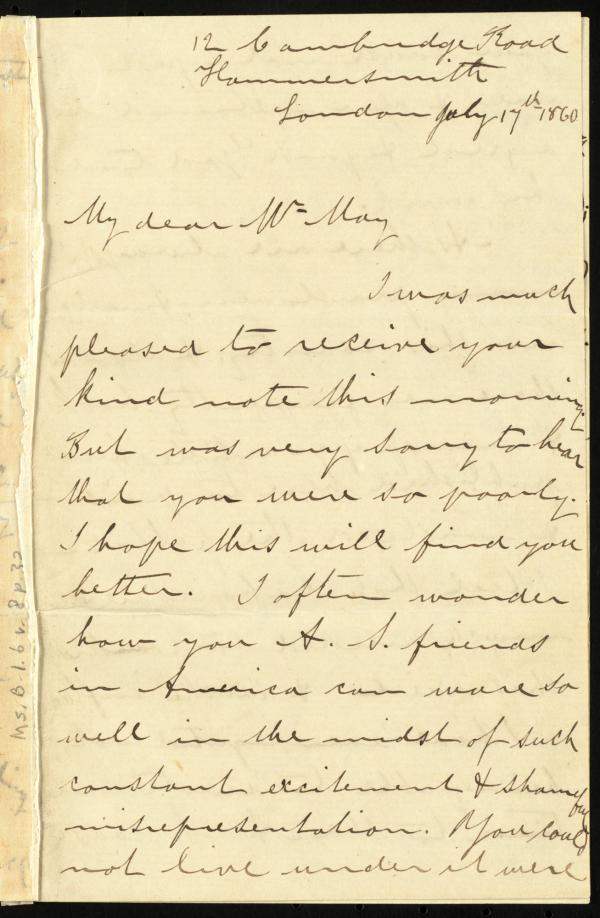 12 Cambridge Road
Hammersmith
London July 17th 1860
My dear Mr May
I was much
pleased to receive your
kind note this morning.
But was very sorry to hear
that you were so poorly.
I hope this will find you
better. I often wonder
how you A. S. friends
in America can ware so
well in the midst of such
constant excitement & shameful
misrepresentation. You could
not live under it were
Ms. B. 1. 6 v. 8 p. 32